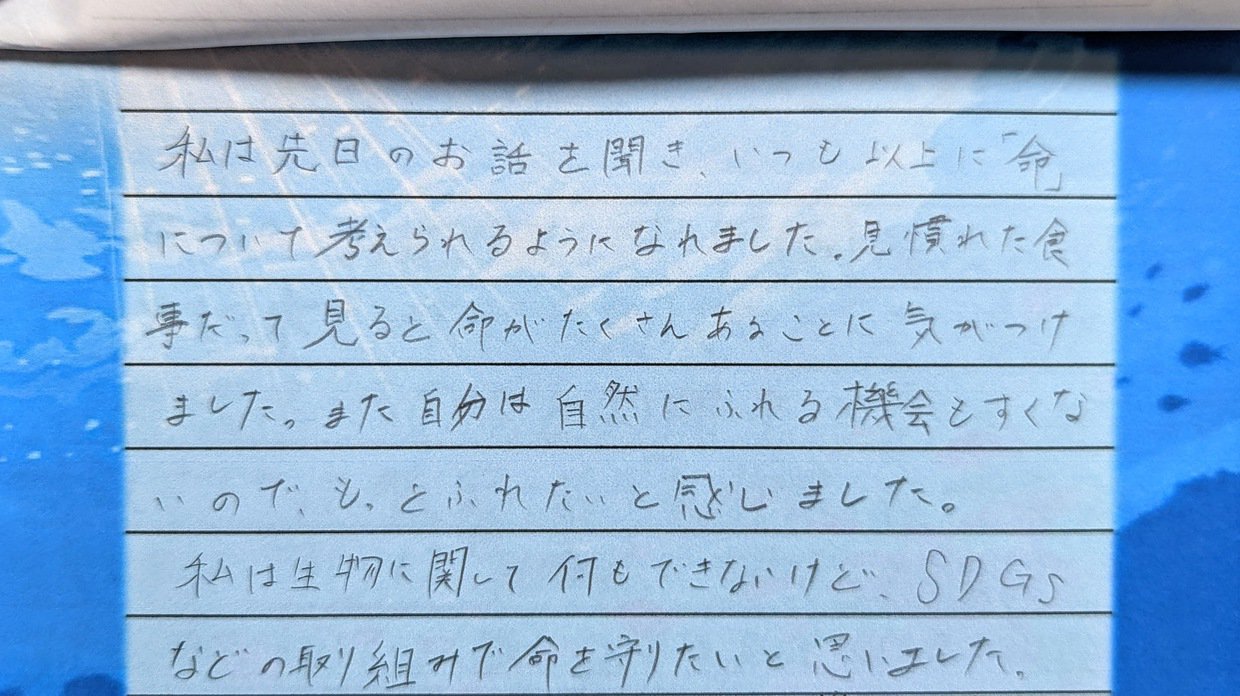 私は先日のお話を聞き、いつも以上に「命」
について考えられるようになれました。見慣れた食
事だって見ると命がたくさんあることに気がつけ
ました。また自分は自然にふれる機会もすくな
いので、もっとふれたいと感じました。
私は生物に関して何もできないけど、SDGs
などの取り組みで命を守りたいと思いました。